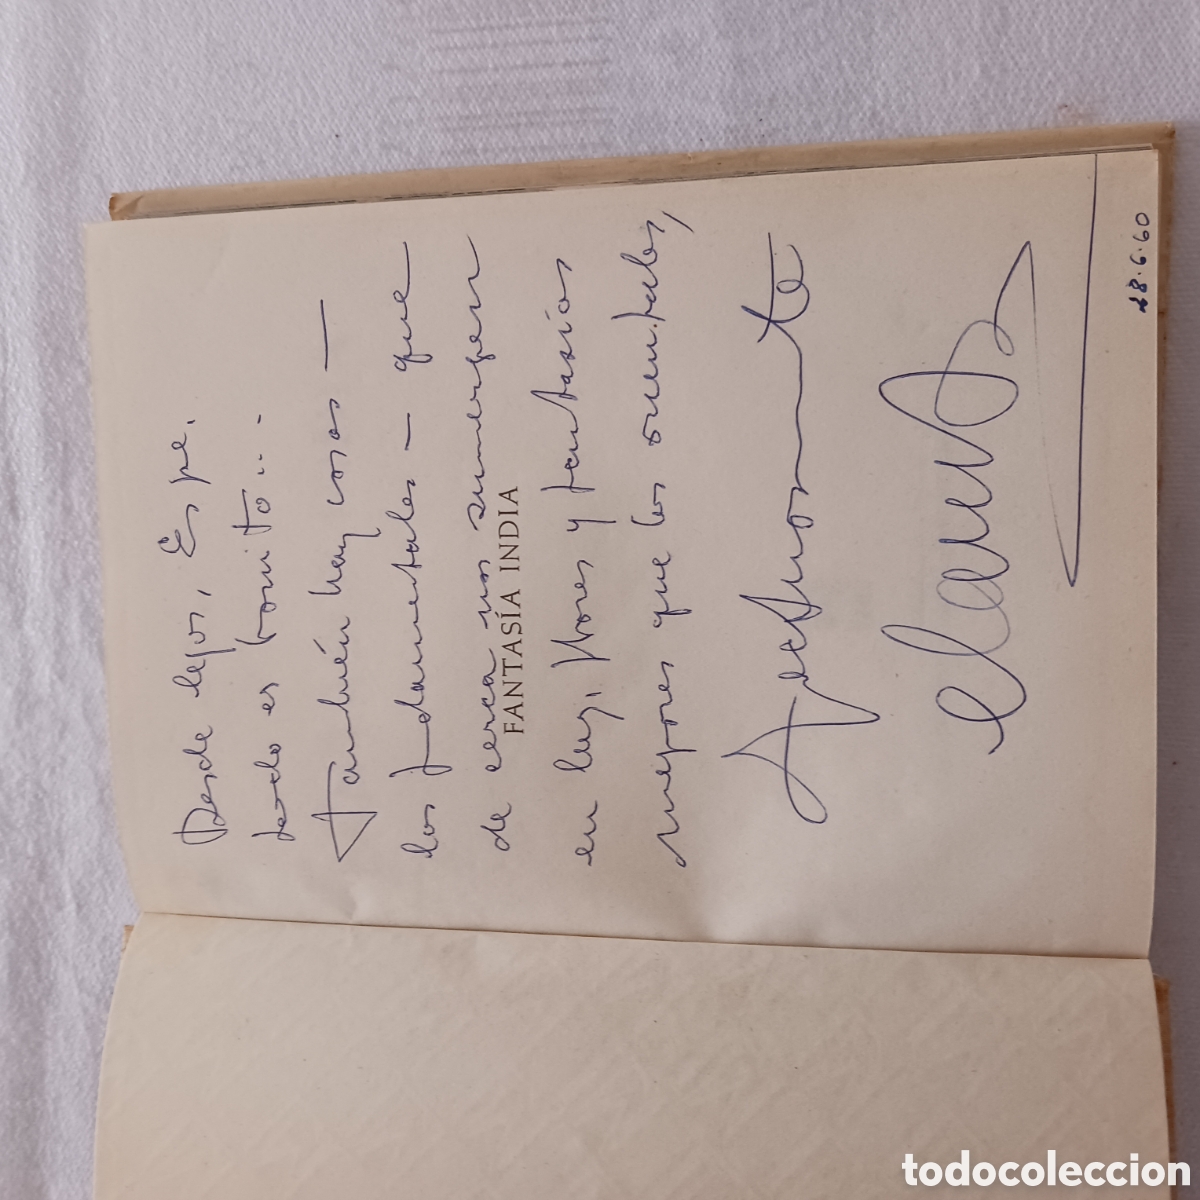 Desde lejos, Espe.
todo es bonito...
También hay cosas —
las fundamentales — que
de cerca nos sumergen
FANTASÍA INDIA
en luz, flores y fantasías
mejores que las orientales,
Afectuosamente
28.6.60
todocoleccion